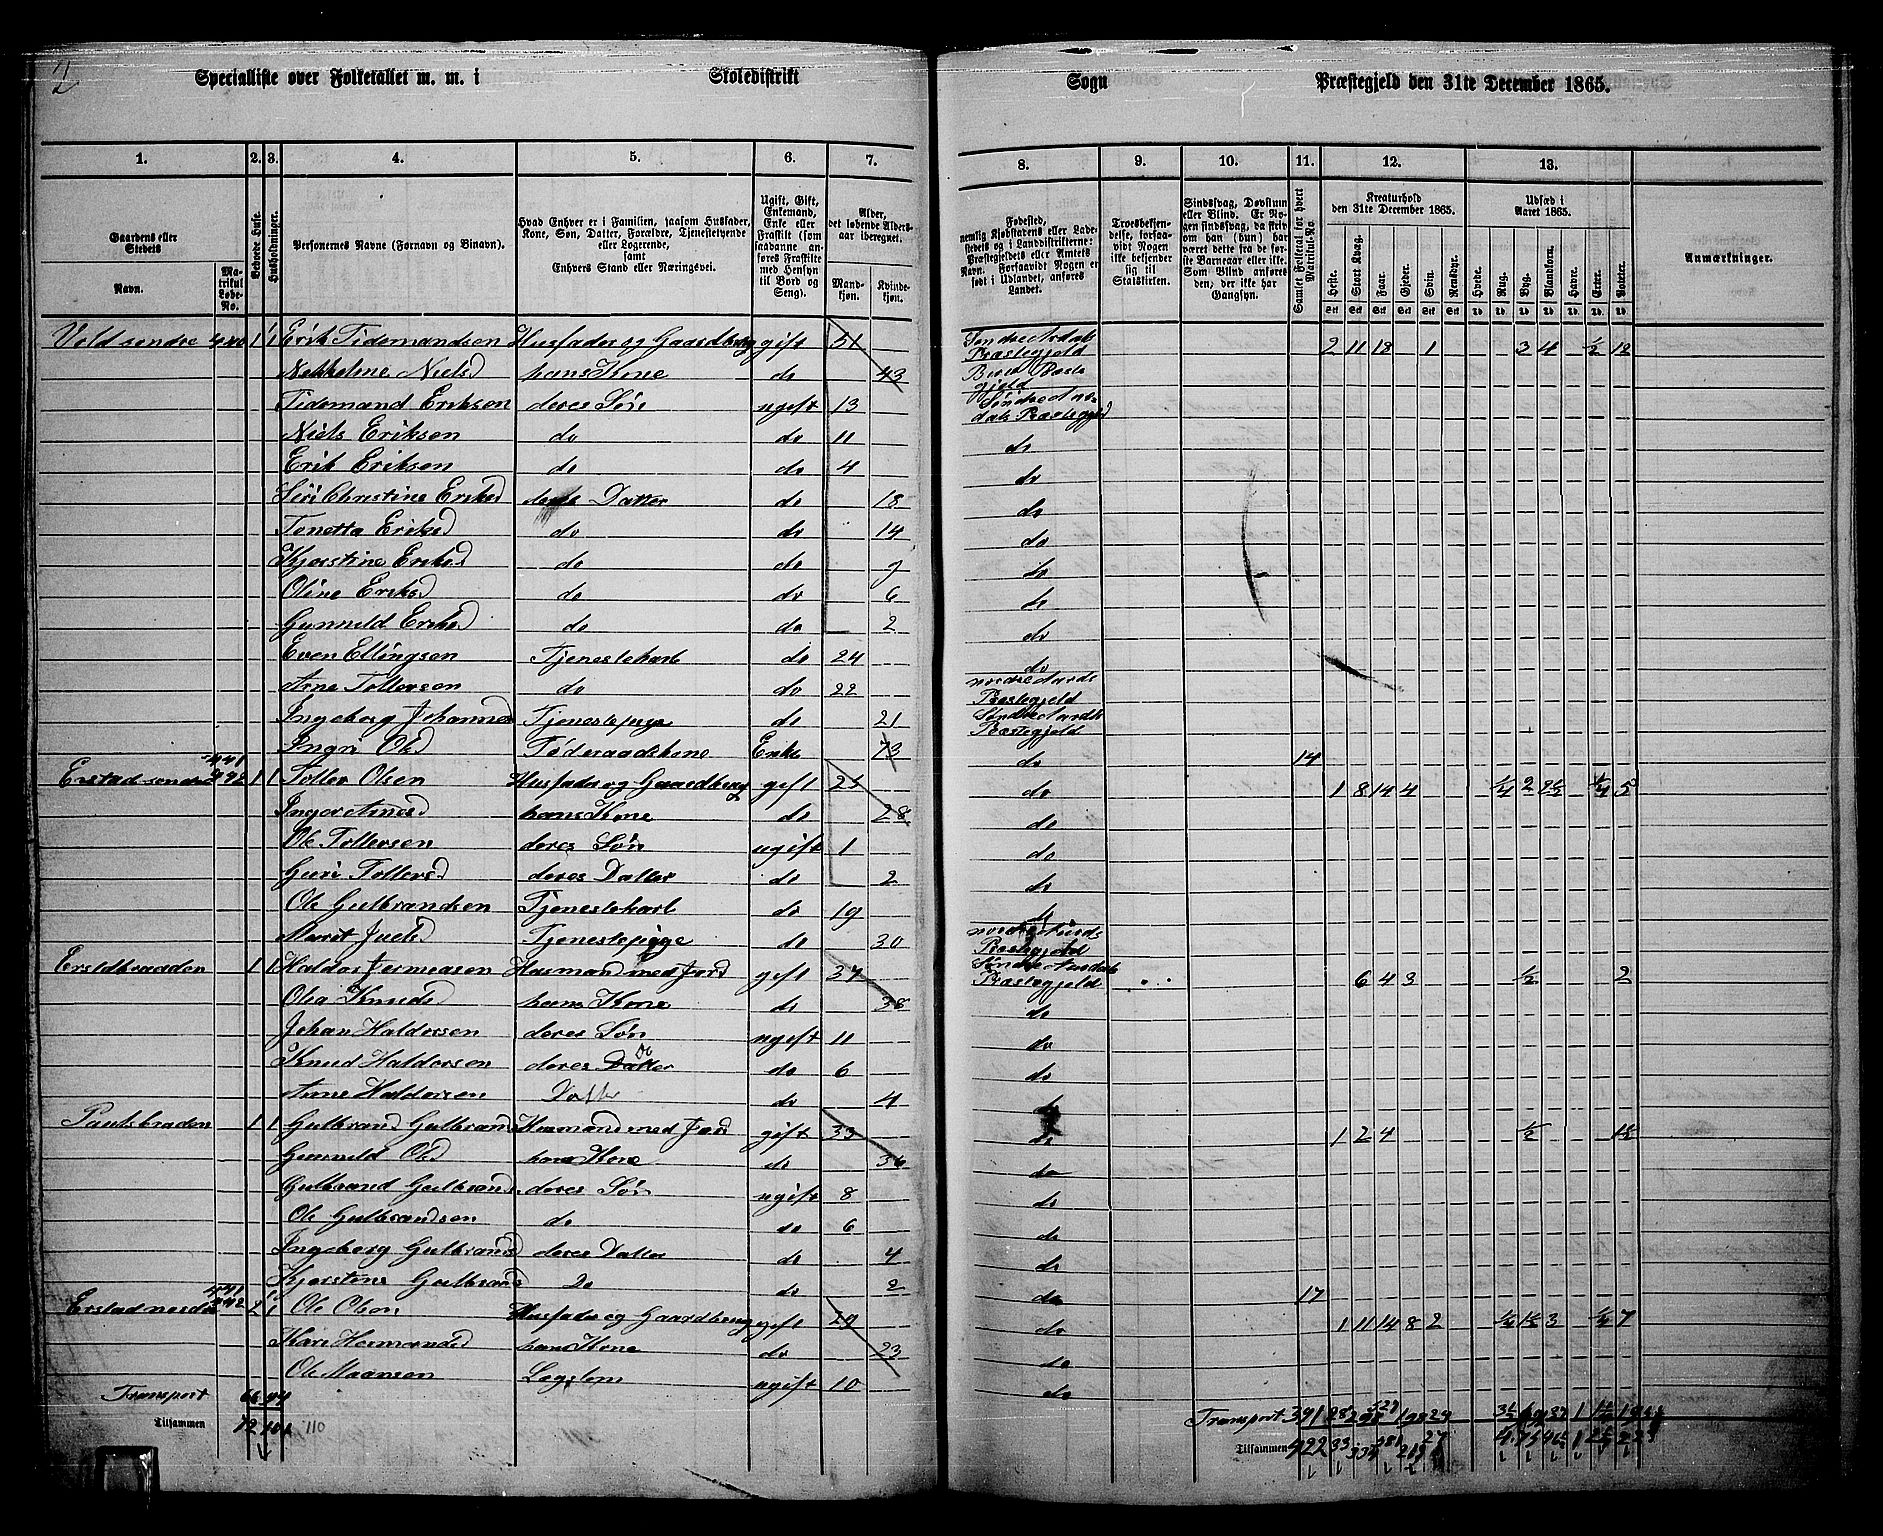 2
Specialliste over Folketallet m. m. i Skoledistrikt Sogn Præstegjeld den 31te December 1865.
1. 2. 3. 4. 5. 6. 7. 8. 9. 10. 11. 12. 13.
Gaardens eller Stedets Navn. Matrikul Løbe-No. Beboede Huse. Husholdninger. Personernes Navne (Fornavn og Binavn). Hvad Enhver er i Familien, saasom Husfader, Kone, Søn, Datter, Forældre, Tjenestetyende eller Logerende, samt Enhvers Stand eller Næringsvei. Ugift, Gift, Enkemand, Enke eller Fraskilt (som saadanne anføres Fraskilte med Hensyn til Bord og Seng). Alder, det løbende Aldersaar iberegnet. Mandkjøn. Kvindekjøn.
Fødested, nemlig Kjøbstadens eller Ladestedets og i Landdistrikterne: Præstegjeldets eller Amtets Navn. Forsaavidt Nogen er født i Udlandet, anføres Landet. Troesbekjendelse, forsaavidt Nogen ikke bekjender sig til Statskirken. Sindssvag, Døvstum eller Blind. Er Nogen sindssvag, da skriv om han (hun) har været dette fra de første Barneaar eller ikke. Som Blind anføres den, der ikke har Gangsyn. Samlet Folketal for hvert Matrikul-No. Kreaturhold den 31te December 1865. Heste. Stort Kvæg. Faar. Gjeder. Svin. Rensdyr. Udsæd i Aaret 1865. Hvede. Rug. Byg. Blandkorn. Havre. Erter. Poteter. Anmærkninger.
Vold søndre 440 1 1 Erik Tidemandsen Husfader og Gaardbrug gift 51 Søndre Ardals Præstegjeld 2 11 18 1 3 4 1/2 12
Niels D hans Kone do 43 Præstegjeld
Tidemand Eriksen deres Søn ugift 13 Søndre Aardals Præstegjeld
Niels Eriksen do do 11 do
Erik Eriksen do do 4 do
Siri Christine Eriks D deres Datter do 18 do
Tonetta Eriks D do do 14 do
Kjerstine Eriks D do do 9 do
Oline Eriks D do do 6 do
Gunnild Eriks D do do 2 do
Even Ellingsen Tjenestekarl do 24 do
Arne Tollersen do do 22 nordre Aards Præstegjeld
Ingeborg Johannes Tjenestepige do 21 Søndre Aardls Præstegjeld
Ingri Ols D Føderaadskone Enke 73 do 14
Erstad søndre 441 442 1 1 Toller Olsen Husfader og Gaardbrug gift 25 do 1 8 14 4 1/4 2 1/4 5
Inger Arnes D hans Kone do 28 do
Ole Tollersen deres Søn ugift 1 do
Guri Tollers D deres Datter do 2 do
Ole Gulbrandsen Tjenestekarl do 19 do
Marit Tjenestepige do 30 nordre Aurds Præstegjeld
1 1 Haldor Husmand med Jord gift 37 Søndre Aurdals Præstegjeld 6 4 3 1/2 2
Olia Knuds D hans Kone do 38 do
Johan Haldorsen deres Søn ugift 11 do
Knud Haldorsen deres Datter do do 6 do
Anne Haldorsen Datter do 4 do
Paulsbraaden 1 1 Gulbrand Gulbrands Husmand med Jord gift 33 do 1 2 4 1/2 1 1/2
Gunnild Ols D hans Kone do 36 do
Gulbrand Gulbrands deres Søn ugift 8 do
Ole Gulbrandsen do do 6 do
Ingeborg Gulbrands D deres Datter do 4 do
Kjerstine Gulbrands Do do 2 do 17
Erstad nordre 441 442 2 1 Ole Olsen Husfader og Gaardbrug gift 29 do 1 11 14 8 2 1/4 1 1/2 3 1/4 7
Kari D hans Kone do 23 do
Ole Legslem ugift 10 do
Transport 66 94 Transport 391 28
Tilsammen 72 101 110 Tilsammen 422 33